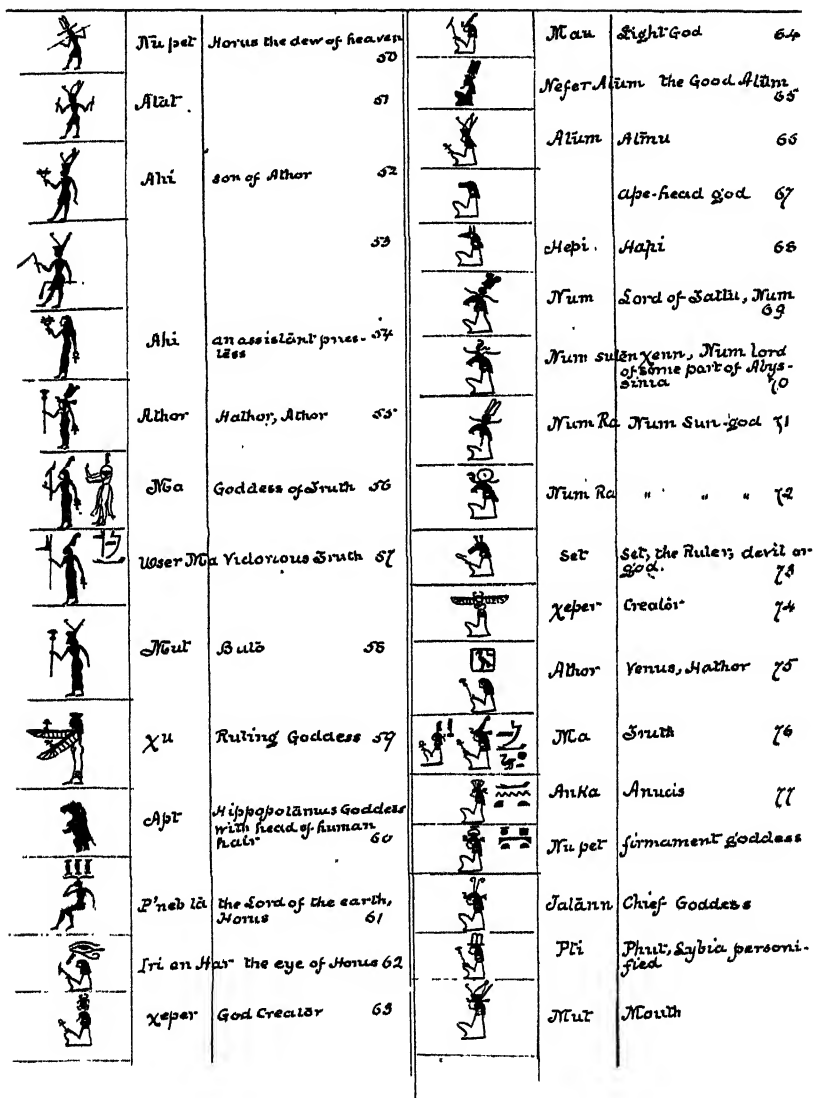 Nū pet Horus the dew of heaven
50
Atat 51
Ahi son of Athor 52
53
Ahi an assistānt pries-
tess 54
Athor Hathor, Athor 55
Ma Goddess of Truth 56
User Ma Victorious Truth 57
Mut Buto 58
χu Ruling Goddess 59
Apt Hippopotāmus Goddess
with head of human
hair 60
P'neb ta the Lord of the earth,
Horus 61
Iri an Har the eye of Horus 62
χeper God Creator 63
Mau Light God 64
Nefer Atūm the Good Atūm
65
Atūm Atmu 66
ape-head god 67
Hepi. Hapi 68
Num Lord of Tattu, Num
69
Num sutēn χenn, Num lord
of some part of Abys-
sinia 70
Num Ra Num Sun-god 71
Num Ra " " " 72
Set Set, the Ruler, devil or
god. 73
χeper Creator 74
Athor Venus, Hathor 75
Ma Truth 76
Anka Anucis 77
Nu pet firmament goddess
Tatānn Chief Goddess
Pti Phut, Lybia personi-
fied
Mut Mouth